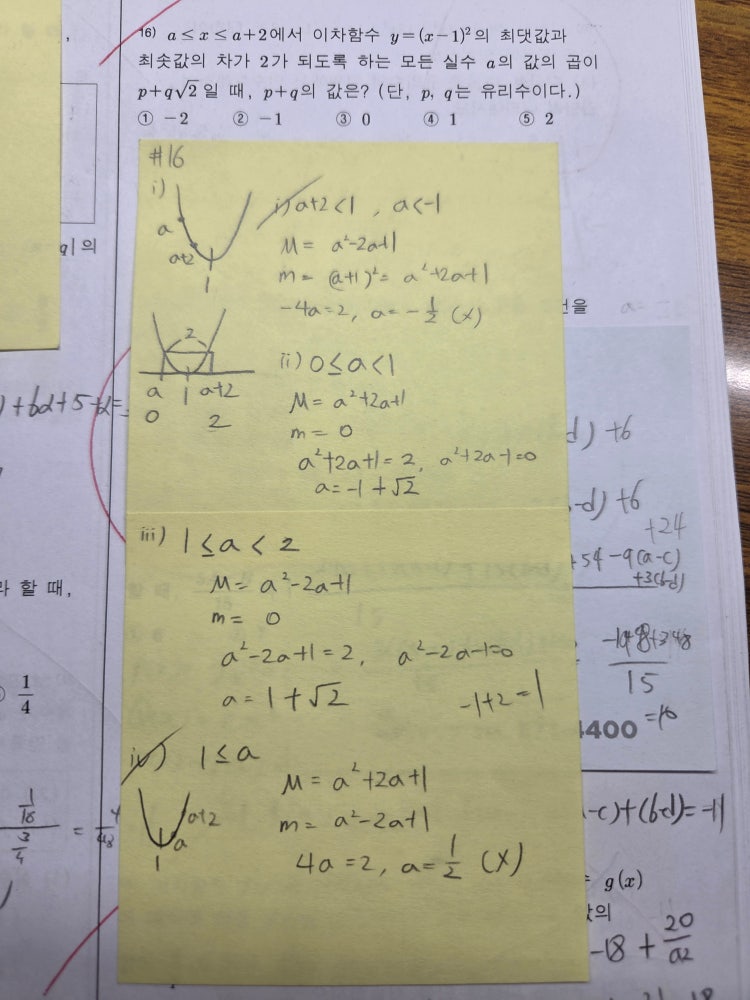 16) a ≤ x ≤ a+2에서 이차함수 y=(x−1)²의 최댓값과
최솟값의 차가 2가 되도록 하는 모든 실수 a의 값의 곱이
p+q√2일 때, p+q의 값은? (단, p, q는 유리수이다.)
① −2 ② −1 ③ 0 ④ 1 ⑤ 2
#16
i)
a
a+2
1
i) a+2<1 , a<-1
M= a²-2a+1
m= (a+1)²= a²+2a+1
-4a=2, a=-1/2 (X)
2
a 1 a+2
0 2
ii) 0≤a<1
M= a²+2a+1
m= 0
a²+2a+1=2, a²+2a-1=0
a=-1+√2
iii) 1≤a<2
M= a²-2a+1
m= 0
a²-2a+1=2, a²-2a-1=0
a=1+√2
-1+2=1
iv) 1≤a
a+2
a
1
M= a²+2a+1
m= a²-2a+1
4a=2, a=1/2 (X)
q|의
)+bd+5+d=
라 할 때,
1/4
d)+6
-d)+6
+24
+54-9(a-c)
+3(b-d)
15
=10
4400
-c)+(b-d)=-11
= g(x)
값의
-18+20/a2